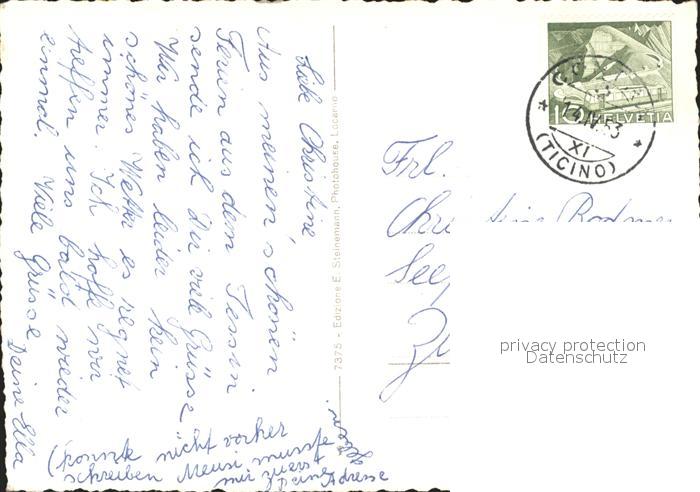 Liebe Christine
Aus meinen schönen
Ferien aus dem Tessin
sende ich dir viele Grüsse
Wir haben leider kein
schönes Wetter es regnet
immer. Ich hoffe wir
treffen uns bald wieder
einmal. Viele Grüsse
Deine Ella
(konnte nicht vorher
schreiben Meusi musste
mir zuerst
Deine Adresse
7375 - Edizione E. Steinemann, Photohouse, Locarno
10 HELVETIA
14.IV.53
XI
(TICINO)
Frl.
Christine Rodmer
See
Zü
privacy protection
Datenschutz